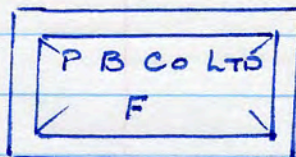 P B Co LTD
F